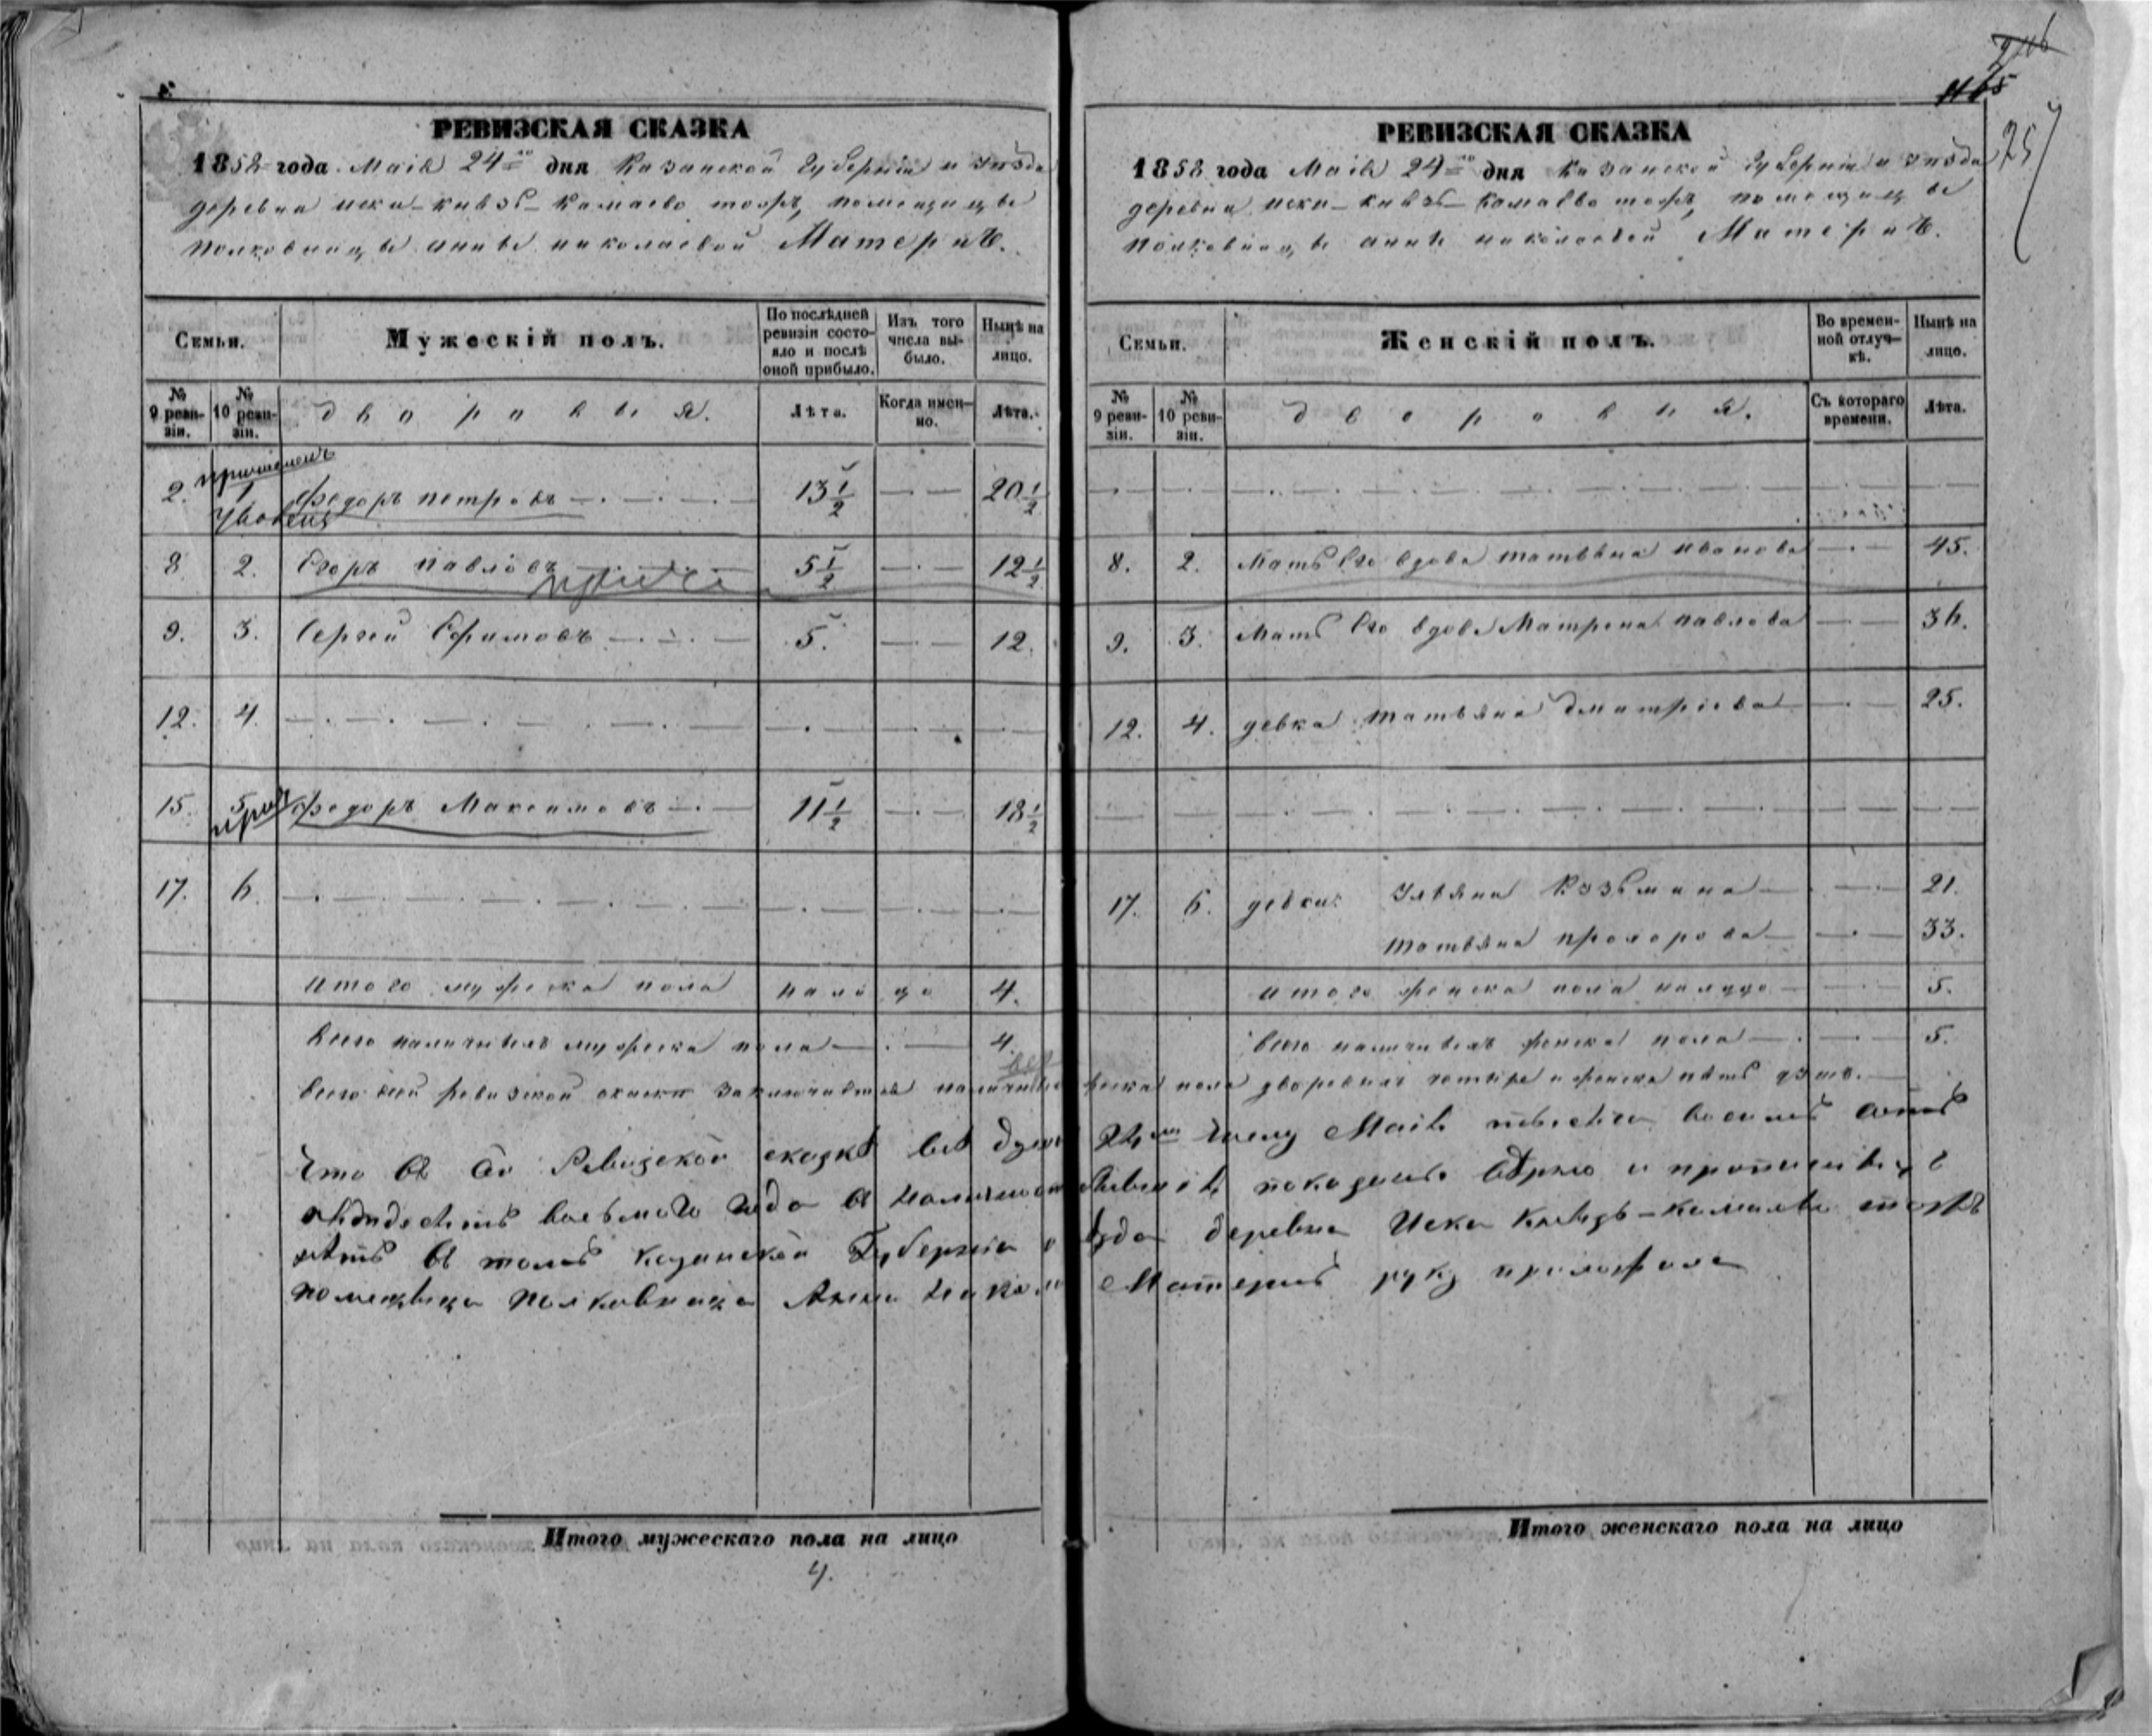 РЕВИЗСКАЯ СКАЗКА
1858 года Маія 24го дня Казанской Губерніи и уѣзда
деревни иски-князь-камаево тожъ, помещицы
полковницы анны николаевой Матернъ.
Семьи.
Мужескій полъ.
По послѣдней ревизіи состояло и послѣ оной прибыло.
Изъ того числа выбыло.
Нынѣ на лицо.
№ 9 ревизіи.
№ 10 ревизіи.
дворовыя.
Лѣта.
Когда именно.
Лѣта.
2. 1 Федоръ петровъ 13 1/2 20 1/2
8 2. Егоръ павловъ 5 1/2 12 1/2
9. 3. Сергей Ефимовъ 5. 12.
12. 4.
15. 5 Федоръ Максимовъ 11 1/2 18 1/2
17. 6.
итого мужеска пола на лицо 4.
Всего наличныхъ мужеска пола 4.
Итого мужескаго пола на лицо
4.
РЕВИЗСКАЯ СКАЗКА
1858 года Маія 24го дня Казанской Губерніи и уѣзда
деревни иски-князь-камаево тожъ, помещицы
полковницы анны николаевой Матернъ.
Семьи.
Женскій полъ.
Во временной отлучкѣ.
Нынѣ на лицо.
№ 9 ревизіи.
№ 10 ревизіи.
дворовыя.
Съ котораго времени.
Лѣта.
8. 2. Мать Его вдова татьяна иванова 45.
9. 3. Мать Его вдова Матрена павлова 36.
12. 4. девка татьяна дмитріева 25.
17. 6. девки: Ульяна Кузьмина 21.
татьяна прохорова 33.
итого женска пола налицо 5.
Всего наличныхъ женска пола 5.
Всего въ сей ревизской сказки заключается мужеска пола дворовыхъ четыре и женска пять душъ.
Что въ сей Ревизской сказкѣ все души 24му числу Маія тысяча восемь сотъ
пятдесятъ восьмого года въ наличности показаны вѣрно и прописных
нѣтъ въ томъ Казанской Губерніи и уезда деревни Иски Князь-Камаева тожъ
помещица Полковница Анна Матернъ руку приложила
Итого женскаго пола на лицо